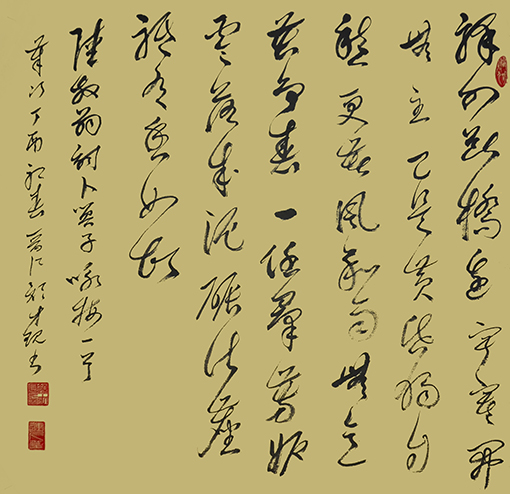 驛外斷橋邊寂寞開
無主已是黄昏獨自
愁更著風和雨無意
苦争春一任羣芳妒
零落成泥碾作塵
祇有香如故
陸放翁詞卜算子咏梅一首
丁酉初春書